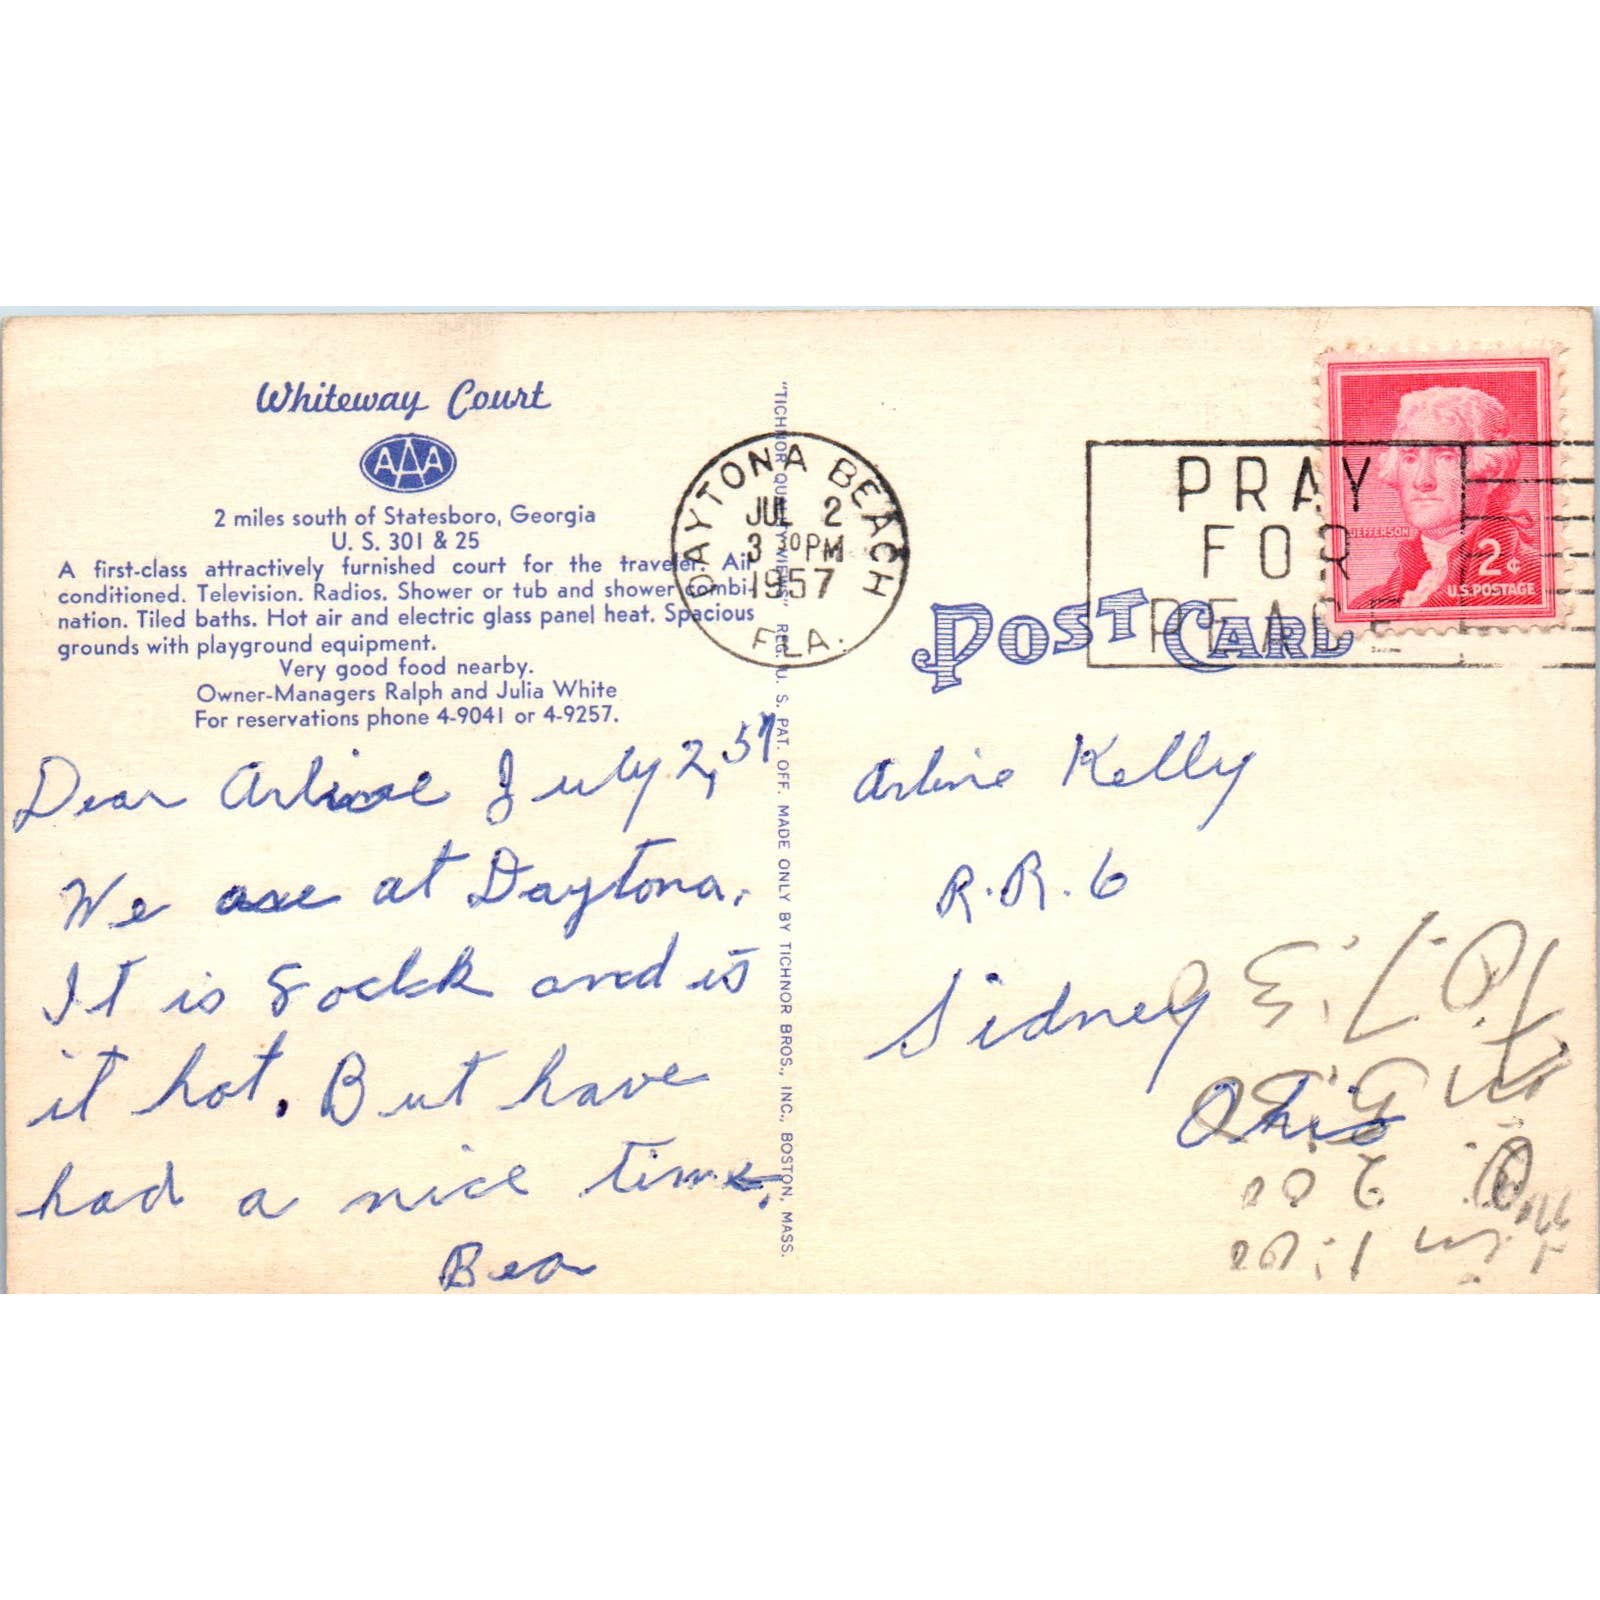 Whiteway Court
AAA
2 miles south of Statesboro, Georgia
U. S. 301 & 25
A first-class attractively furnished court for the traveler. Air
conditioned. Television. Radios. Shower or tub and shower combi-
nation. Tiled baths. Hot air and electric glass panel heat. Spacious
grounds with playground equipment.
Very good food nearby.
Owner-Managers Ralph and Julia White
For reservations phone 4-9041 or 4-9257.
Dear Arline July 2, 57
We are at Daytona.
It is 8 oclk and is
it hot. But have
had a nice time.
Bea
"TICHNOR QUALITY VIEWS" REG. U. S. PAT. OFF. MADE ONLY BY TICHNOR BROS., INC., BOSTON, MASS.
DAYTONA BEACH
JUL 2
3 PM
1957
FLA.
PRAY
FOR
PEACE
JEFFERSON
2¢
U.S. POSTAGE
POST CARD
Arline Kelly
R.R. 6
Sidney
Ohio